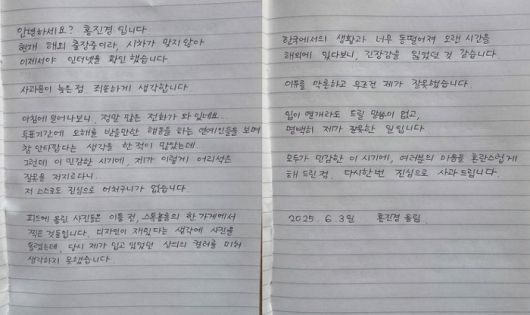 안녕하세요? 홍진경 입니다
현재 해외 출장중이라, 시차가 맞지 않아
이제서야 인터넷을 확인했습니다
사과문이 늦은 점 죄송하게 생각합니다
아침에 일어나보니, 정말 많은 전화가 와 있네요...
투표기간에 오해를 받을만한 행동을 하는 연예인들을 보며
참 안타깝다는 생각을 한 적이 많았는데..
그런데 이 민감한 시기에, 제가 이렇게 어리석은
잘못을 저지르다니.
저 스스로도 진심으로 어처구니가 없습니다
피드에 올린 사진들은 이틀 전, 스톡홀름의 한 가게에서
찍은 것들입니다. 디자인이 재밌다는 생각에 사진을
올렸는데, 당시 제가 입고 있었던 상의의 컬러를 미처
생각하지 못했습니다.
한국에서의 생활과 너무 동떨어져 오랜 시간을
해외에 있다보니, 긴장감을 잃었던 것 같습니다.
이유를 막론하고 무조건 제가 잘못했습니다.
입이 열개라도 드릴 말씀이 없고,
명백히 제가 잘못한 일입니다
모두가 민감한 이 시기에, 여러분의 마음을 혼란스럽게
해 드린 점, 다시한번 진심으로 사과드립니다.
2025. 6. 3일 홍진경 올림.